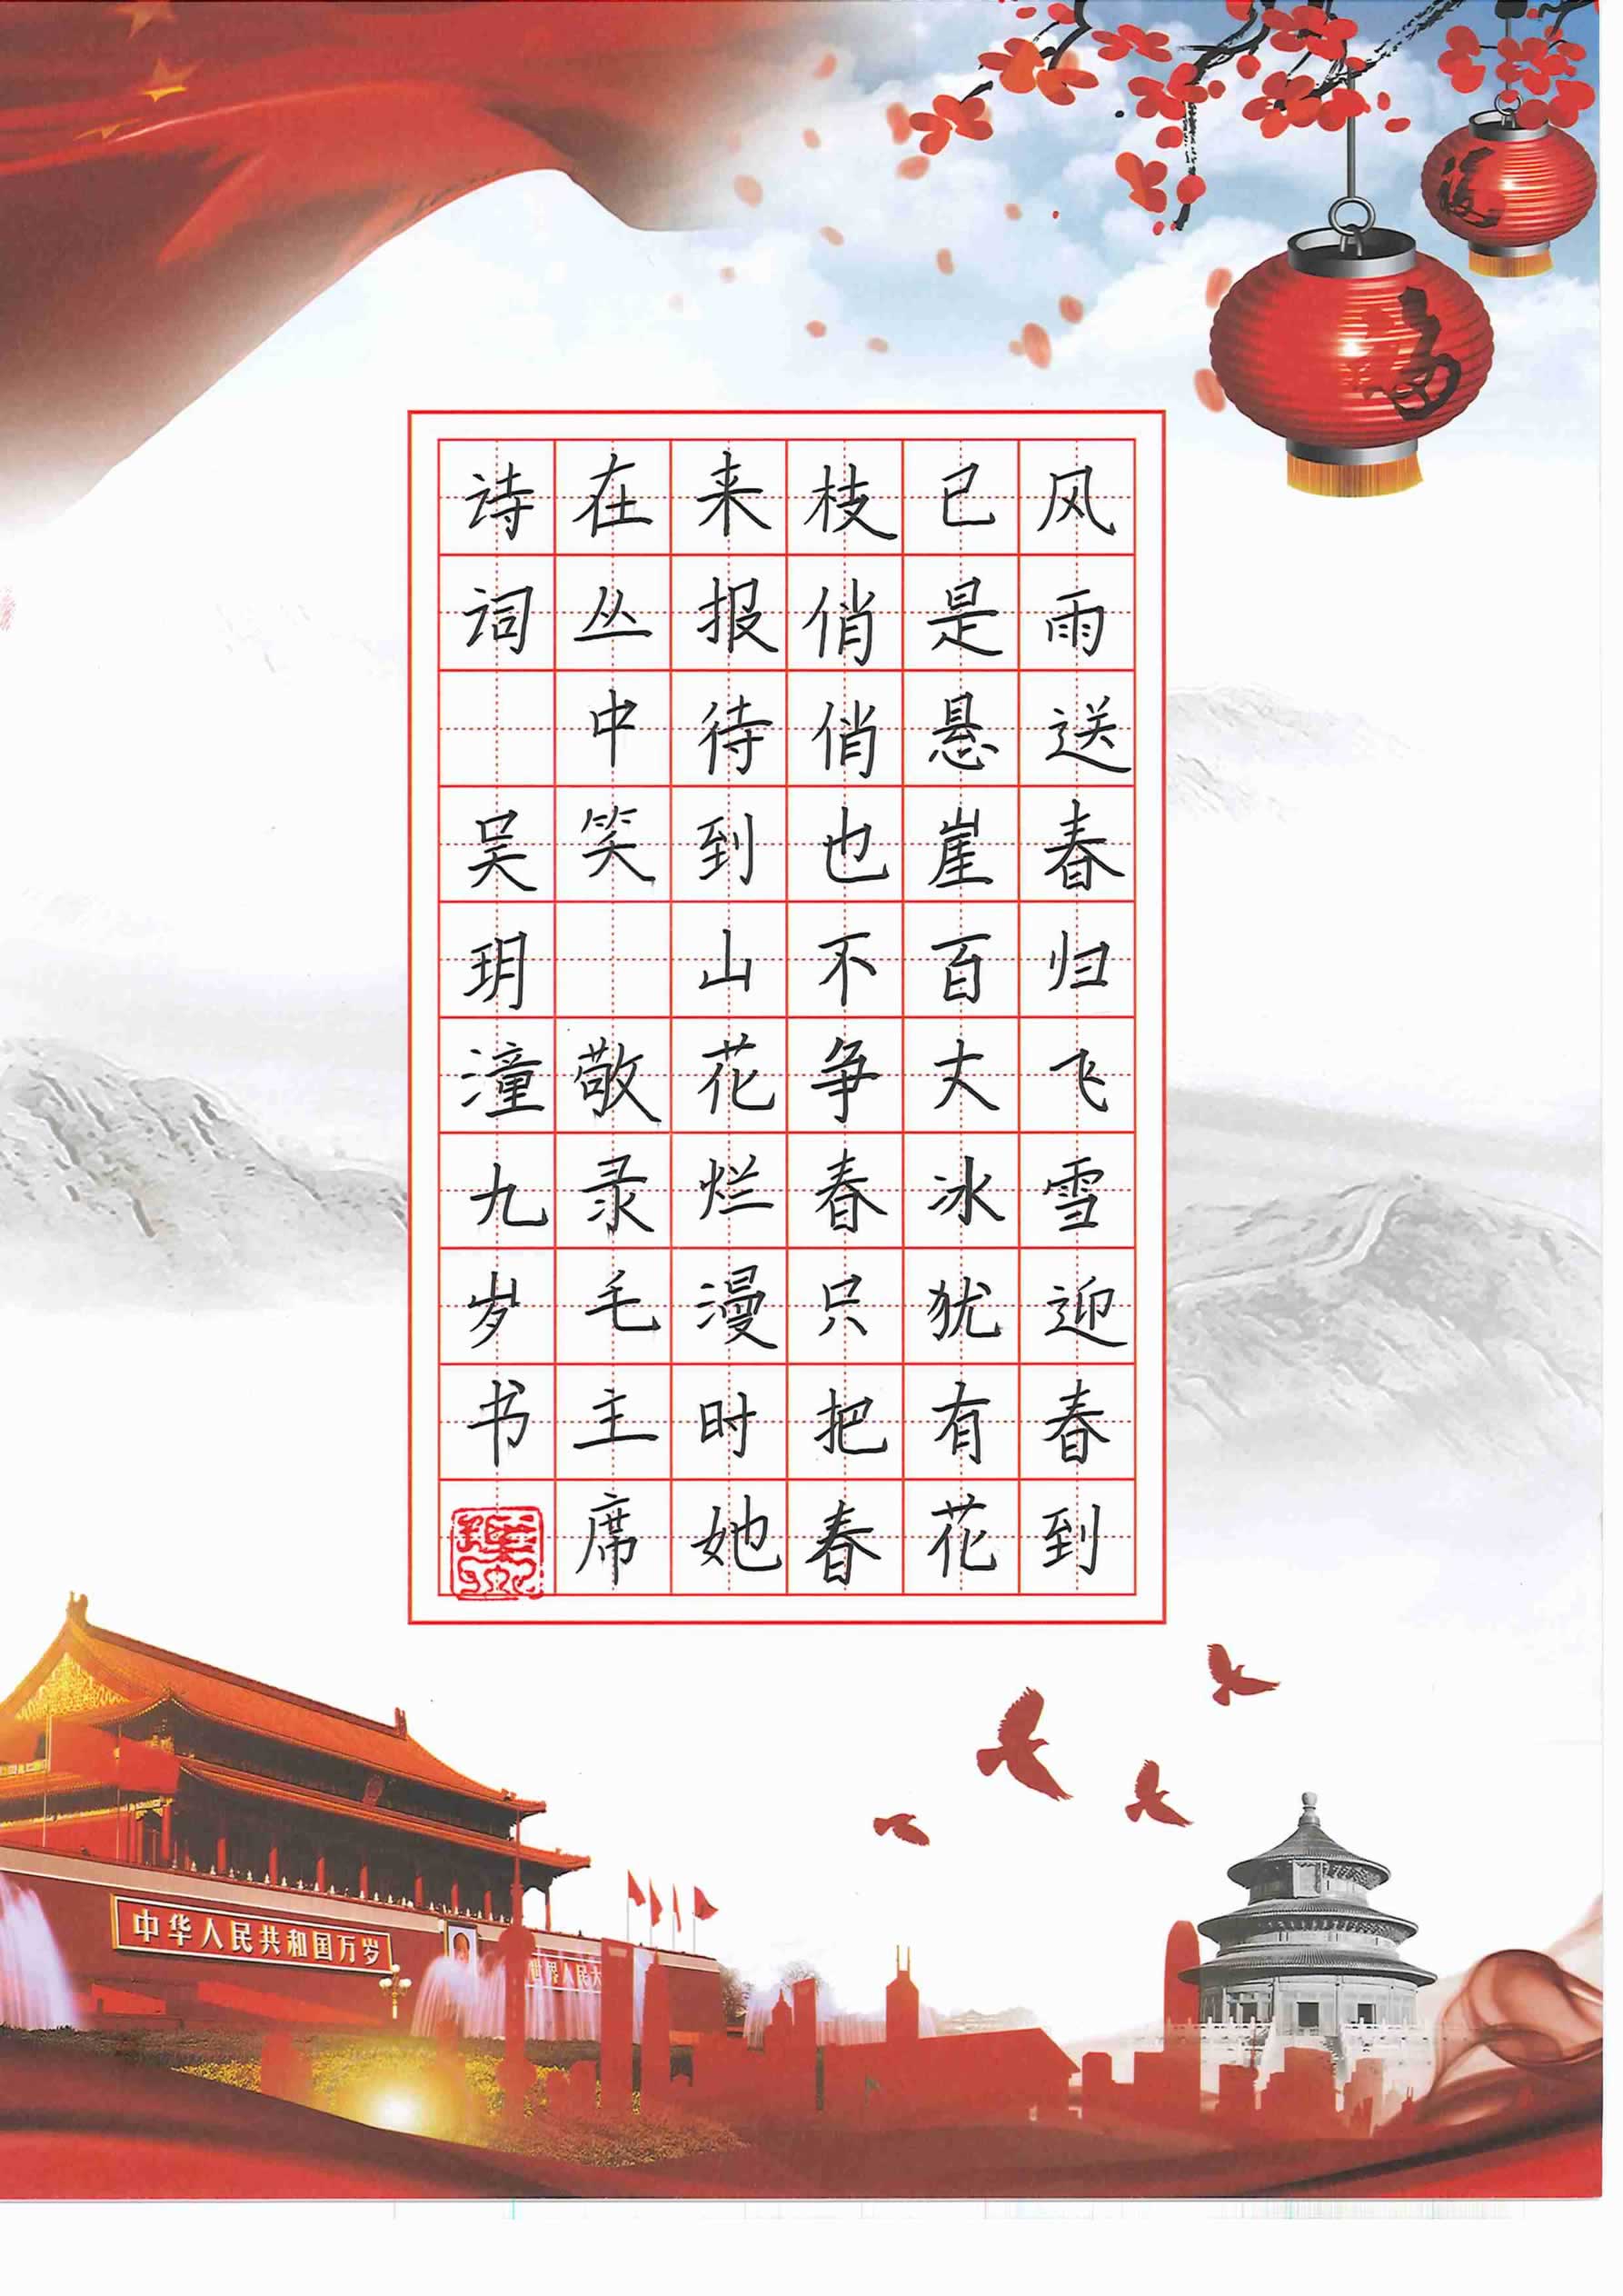 风雨送春归飞雪迎春到
已是悬崖百丈冰犹有花
枝俏俏也不争春只把春
来报待到山花烂漫时她
在丛中笑 敬录毛主席
诗词 吴玥潼九岁书
福
福
中华人民共和国万岁
世界人民大